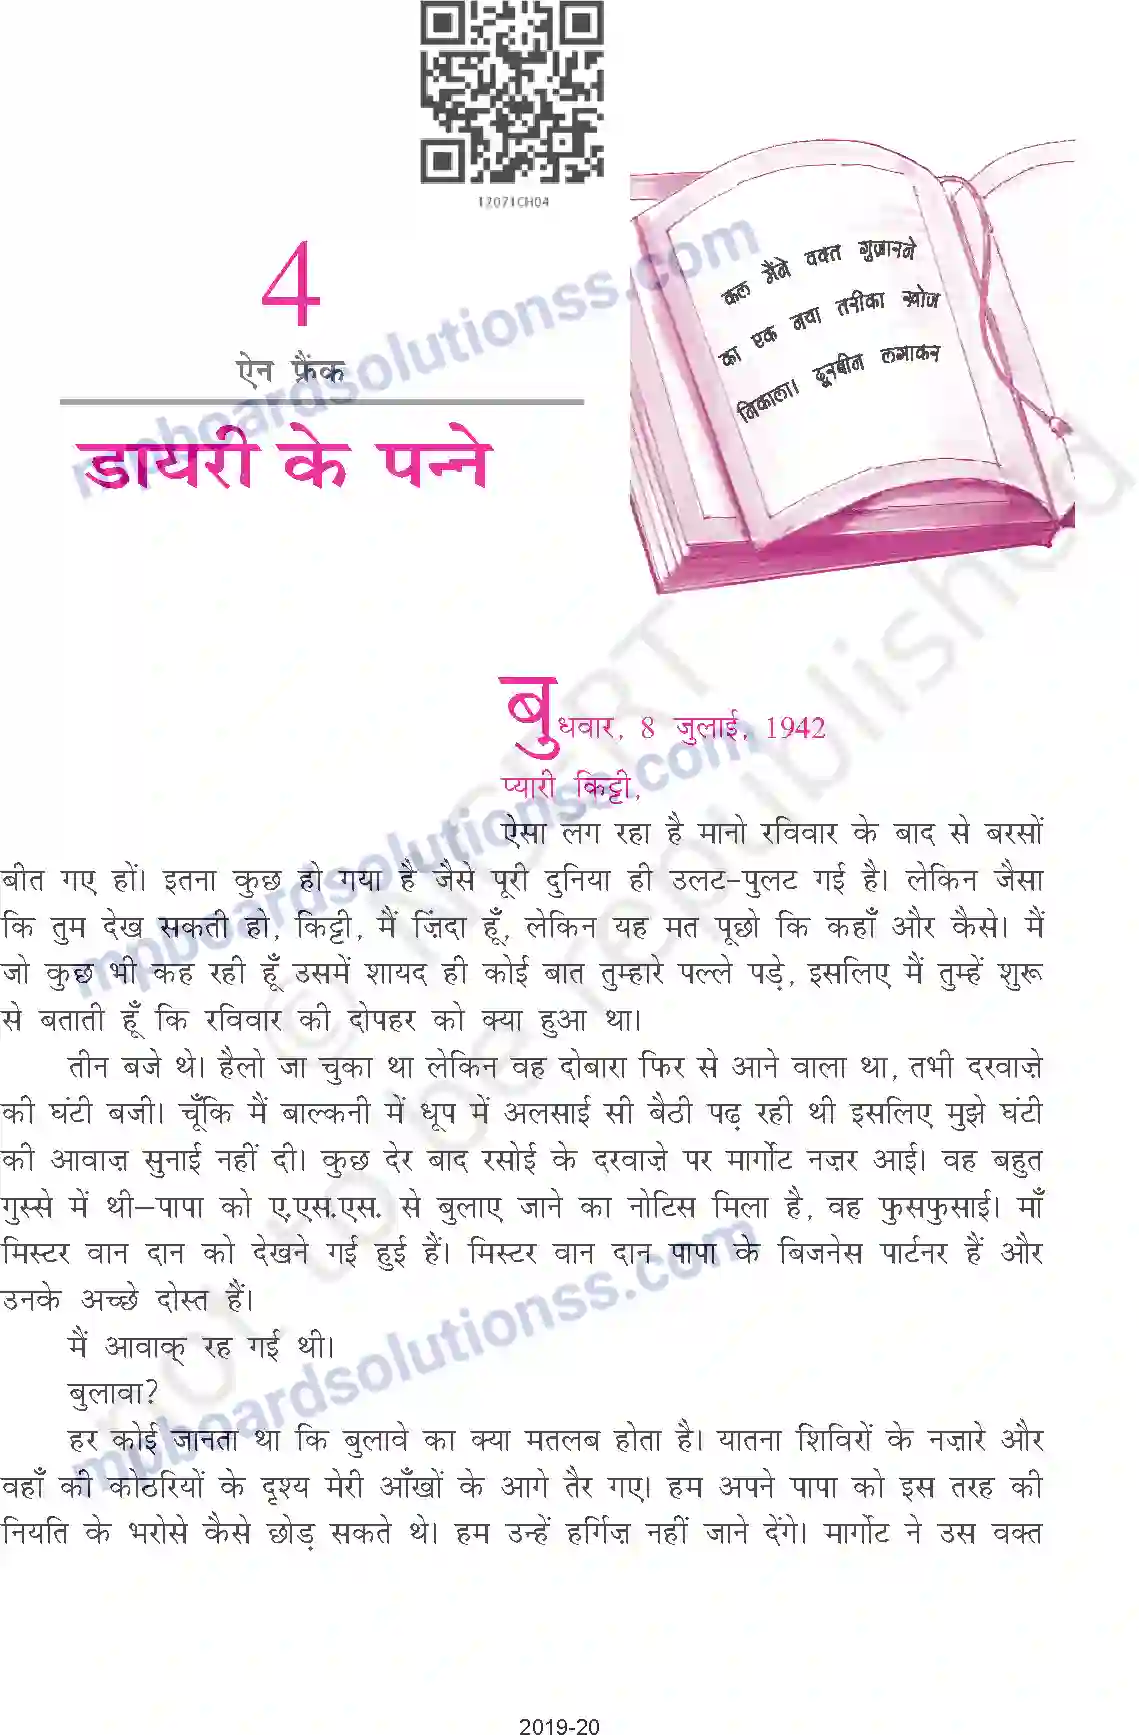 12071CH04
4
ऐन फ्रैंक
डायरी के पन्ने
कल मैंने वक्त गुज़ारने
का एक नया तरीका खोज
निकाला। दूरबीन लगाकर
बुधवार, 8 जुलाई, 1942
प्यारी किट्टी,
ऐसा लग रहा है मानो रविवार के बाद से बरसों
बीत गए हों। इतना कुछ हो गया है जैसे पूरी दुनिया ही उलट-पुलट गई है। लेकिन जैसा
कि तुम देख सकती हो, किट्टी, मैं ज़िंदा हूँ, लेकिन यह मत पूछो कि कहाँ और कैसे। मैं
जो कुछ भी कह रही हूँ उसमें शायद ही कोई बात तुम्हारे पल्ले पड़े, इसलिए मैं तुम्हें शुरू
से बताती हूँ कि रविवार की दोपहर को क्या हुआ था।
तीन बजे थे। हैलो जा चुका था लेकिन वह दोबारा फिर से आने वाला था, तभी दरवाज़े
की घंटी बजी। चूँकि मैं बाल्कनी में धूप में अलसाई सी बैठी पढ़ रही थी इसलिए मुझे घंटी
की आवाज़ सुनाई नहीं दी। कुछ देर बाद रसोई के दरवाज़े पर मार्गोट नज़र आई। वह बहुत
गुस्से में थी–पापा को ए.एस.एस. से बुलाए जाने का नोटिस मिला है, वह फुसफुसाई। माँ
मिस्टर वान दान को देखने गई हुई हैं। मिस्टर वान दान पापा के बिजनेस पार्टनर हैं और
उनके अच्छे दोस्त हैं।
मैं आवाक् रह गई थी।
बुलावा?
हर कोई जानता था कि बुलावे का क्या मतलब होता है। यातना शिविरों के नज़ारे और
वहाँ की कोठरियों के दृश्य मेरी आँखों के आगे तैर गए। हम अपने पापा को इस तरह की
नियति के भरोसे कैसे छोड़ सकते थे। हम उन्हें हर्गिज़ नहीं जाने देंगे। मार्गोट ने उस वक्त
2019-20
mpboardsolutionss.com
mpboardsolutionss.com
mpboardsolutionss.com
© NCERT
not to be republished